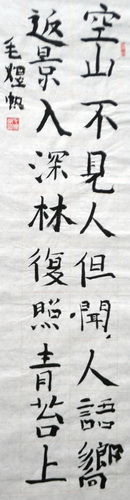 空山不見人但聞人語響
返景入深林復照青苔上
毛猩帆